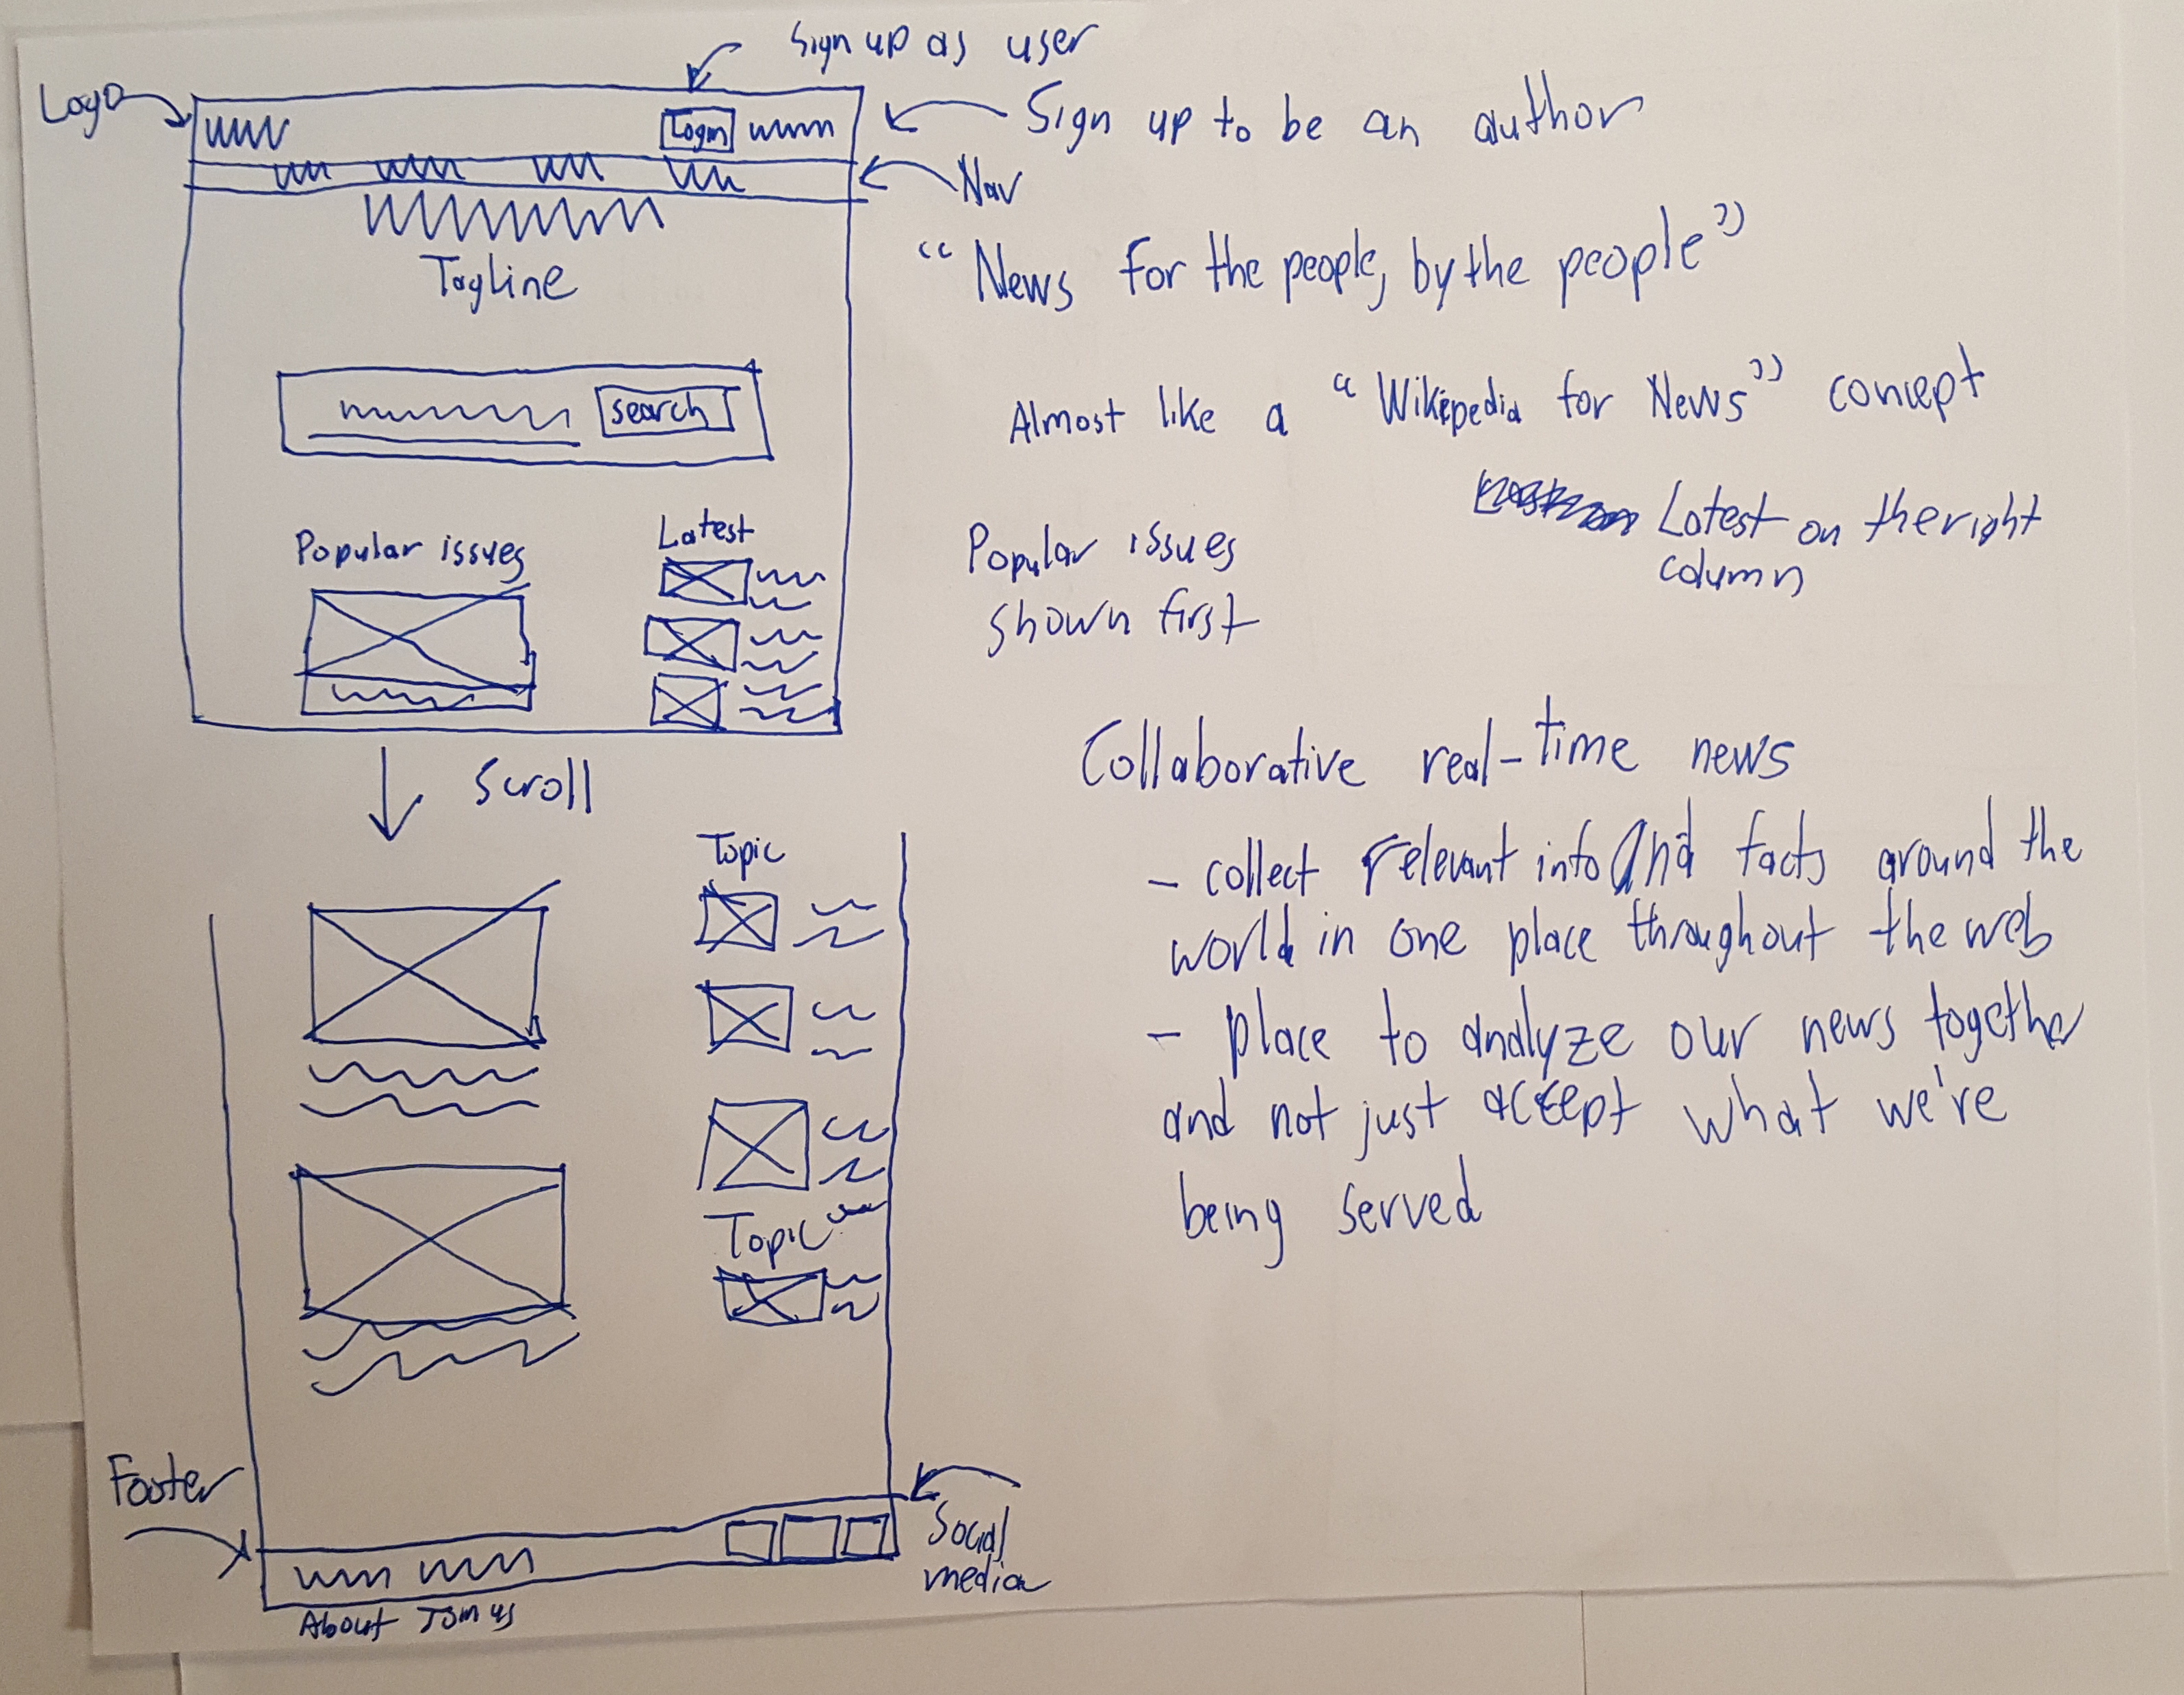 Sign up as user
Logo
Login
Sign up to be an author
Nav
Tagline
“News for the people, by the people”
search
Almost like a “Wikipedia for News” concept
Popular issues
Latest
Popular issues
shown first
Latest on the right
column
Scroll
Collaborative real-time news
- collect relevant info and facts around the
world in one place throughout the web
- place to analyze our news together
and not just accept what we're
being served
Topic
Topic
Footer
Social
media
About Join us